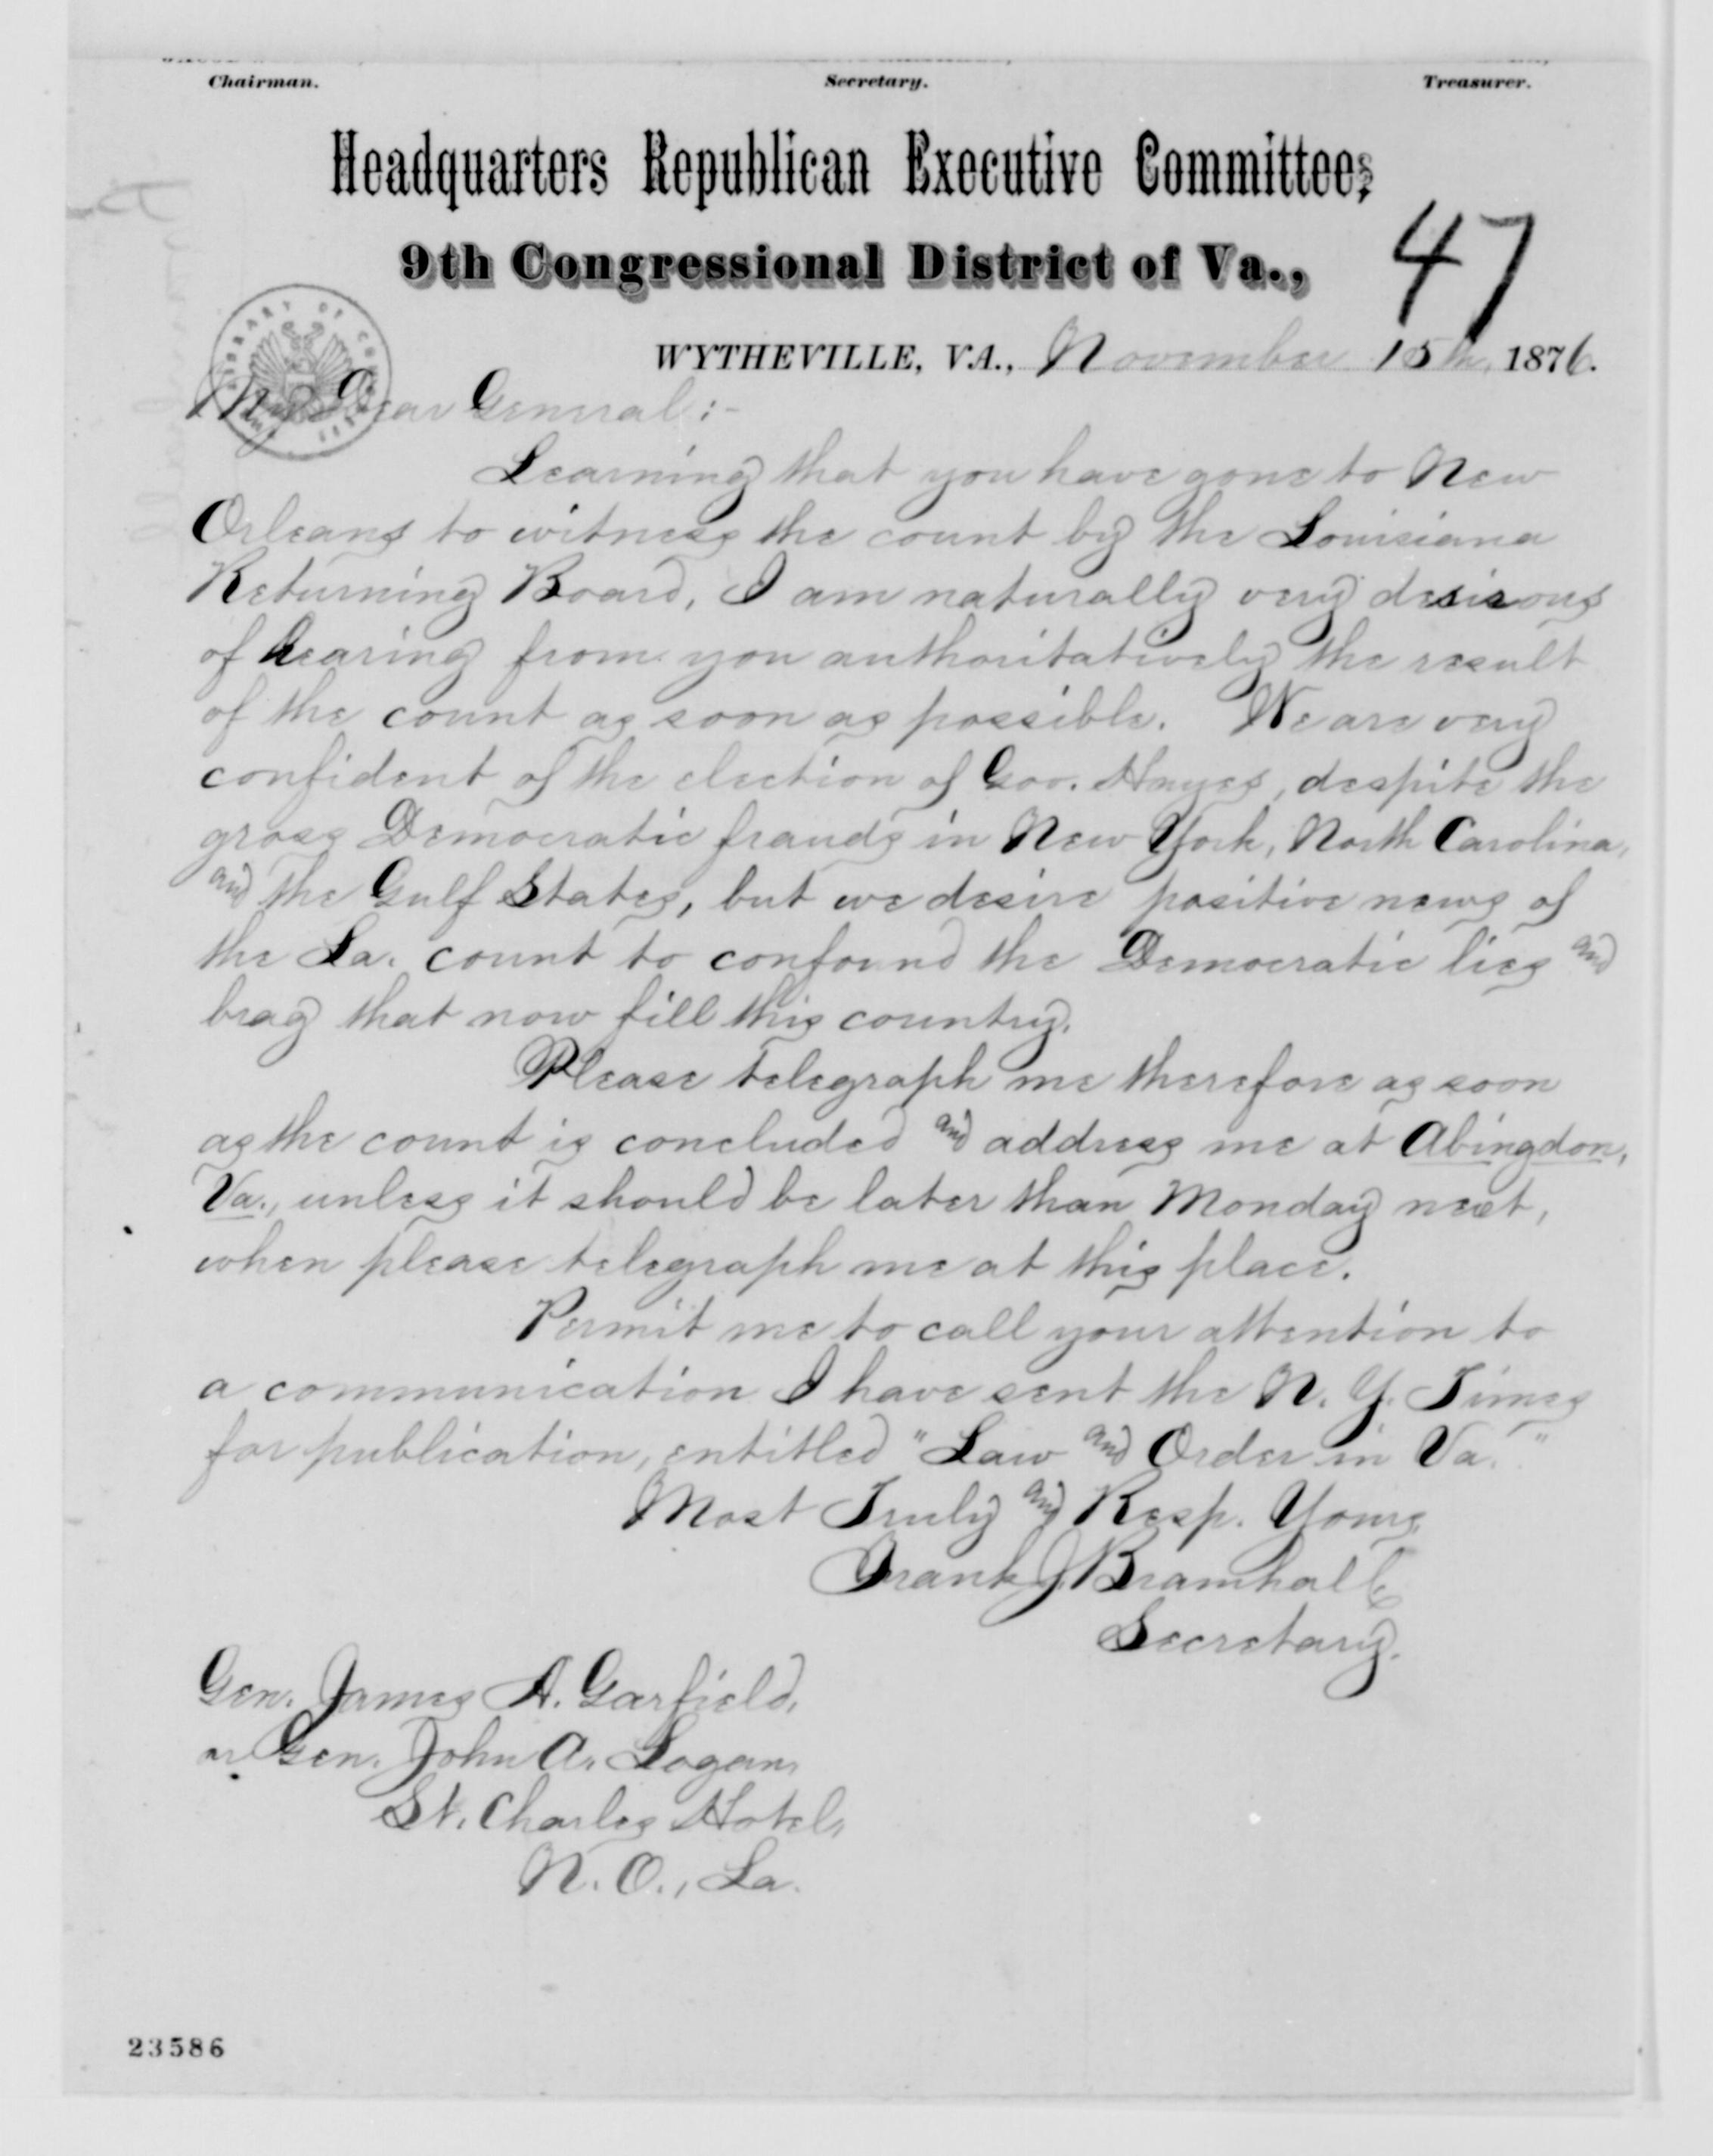 Chairman. Secretary. Treasurer.
Headquarters Republican Executive Committee,
9th Congressional District of Va.,
47
WYTHEVILLE, VA., November 15th, 1876.
LIBRARY OF
My Dear General:-
Learning that you have gone to New
Orleans to witness the count by the Louisiana
Returning Board, I am naturally very desirous
of hearing from you authoritatively the result
of the count as soon as possible. We are very
confident of the election of Gov. Hayes, despite the
gross Democratic frauds in New York, North Carolina,
and the Gulf States, but we desire positive news of
the La. count to confound the Democratic lies and
brag that now fill this country.
Please telegraph me therefore as soon
as the count is concluded and address me at Abingdon,
Va., unless it should be later than Monday next,
when please telegraph me at this place.
Permit me to call your attention to
a communication I have sent the N. Y. Times
for publication, entitled "Law and Order in Va."
Most Truly and Resp. Yours,
Frank J. Bramhall
Secretary.
Gen. James A. Garfield,
or Gen. John A. Logan,
St. Charles Hotel,
N. O., La.
23586